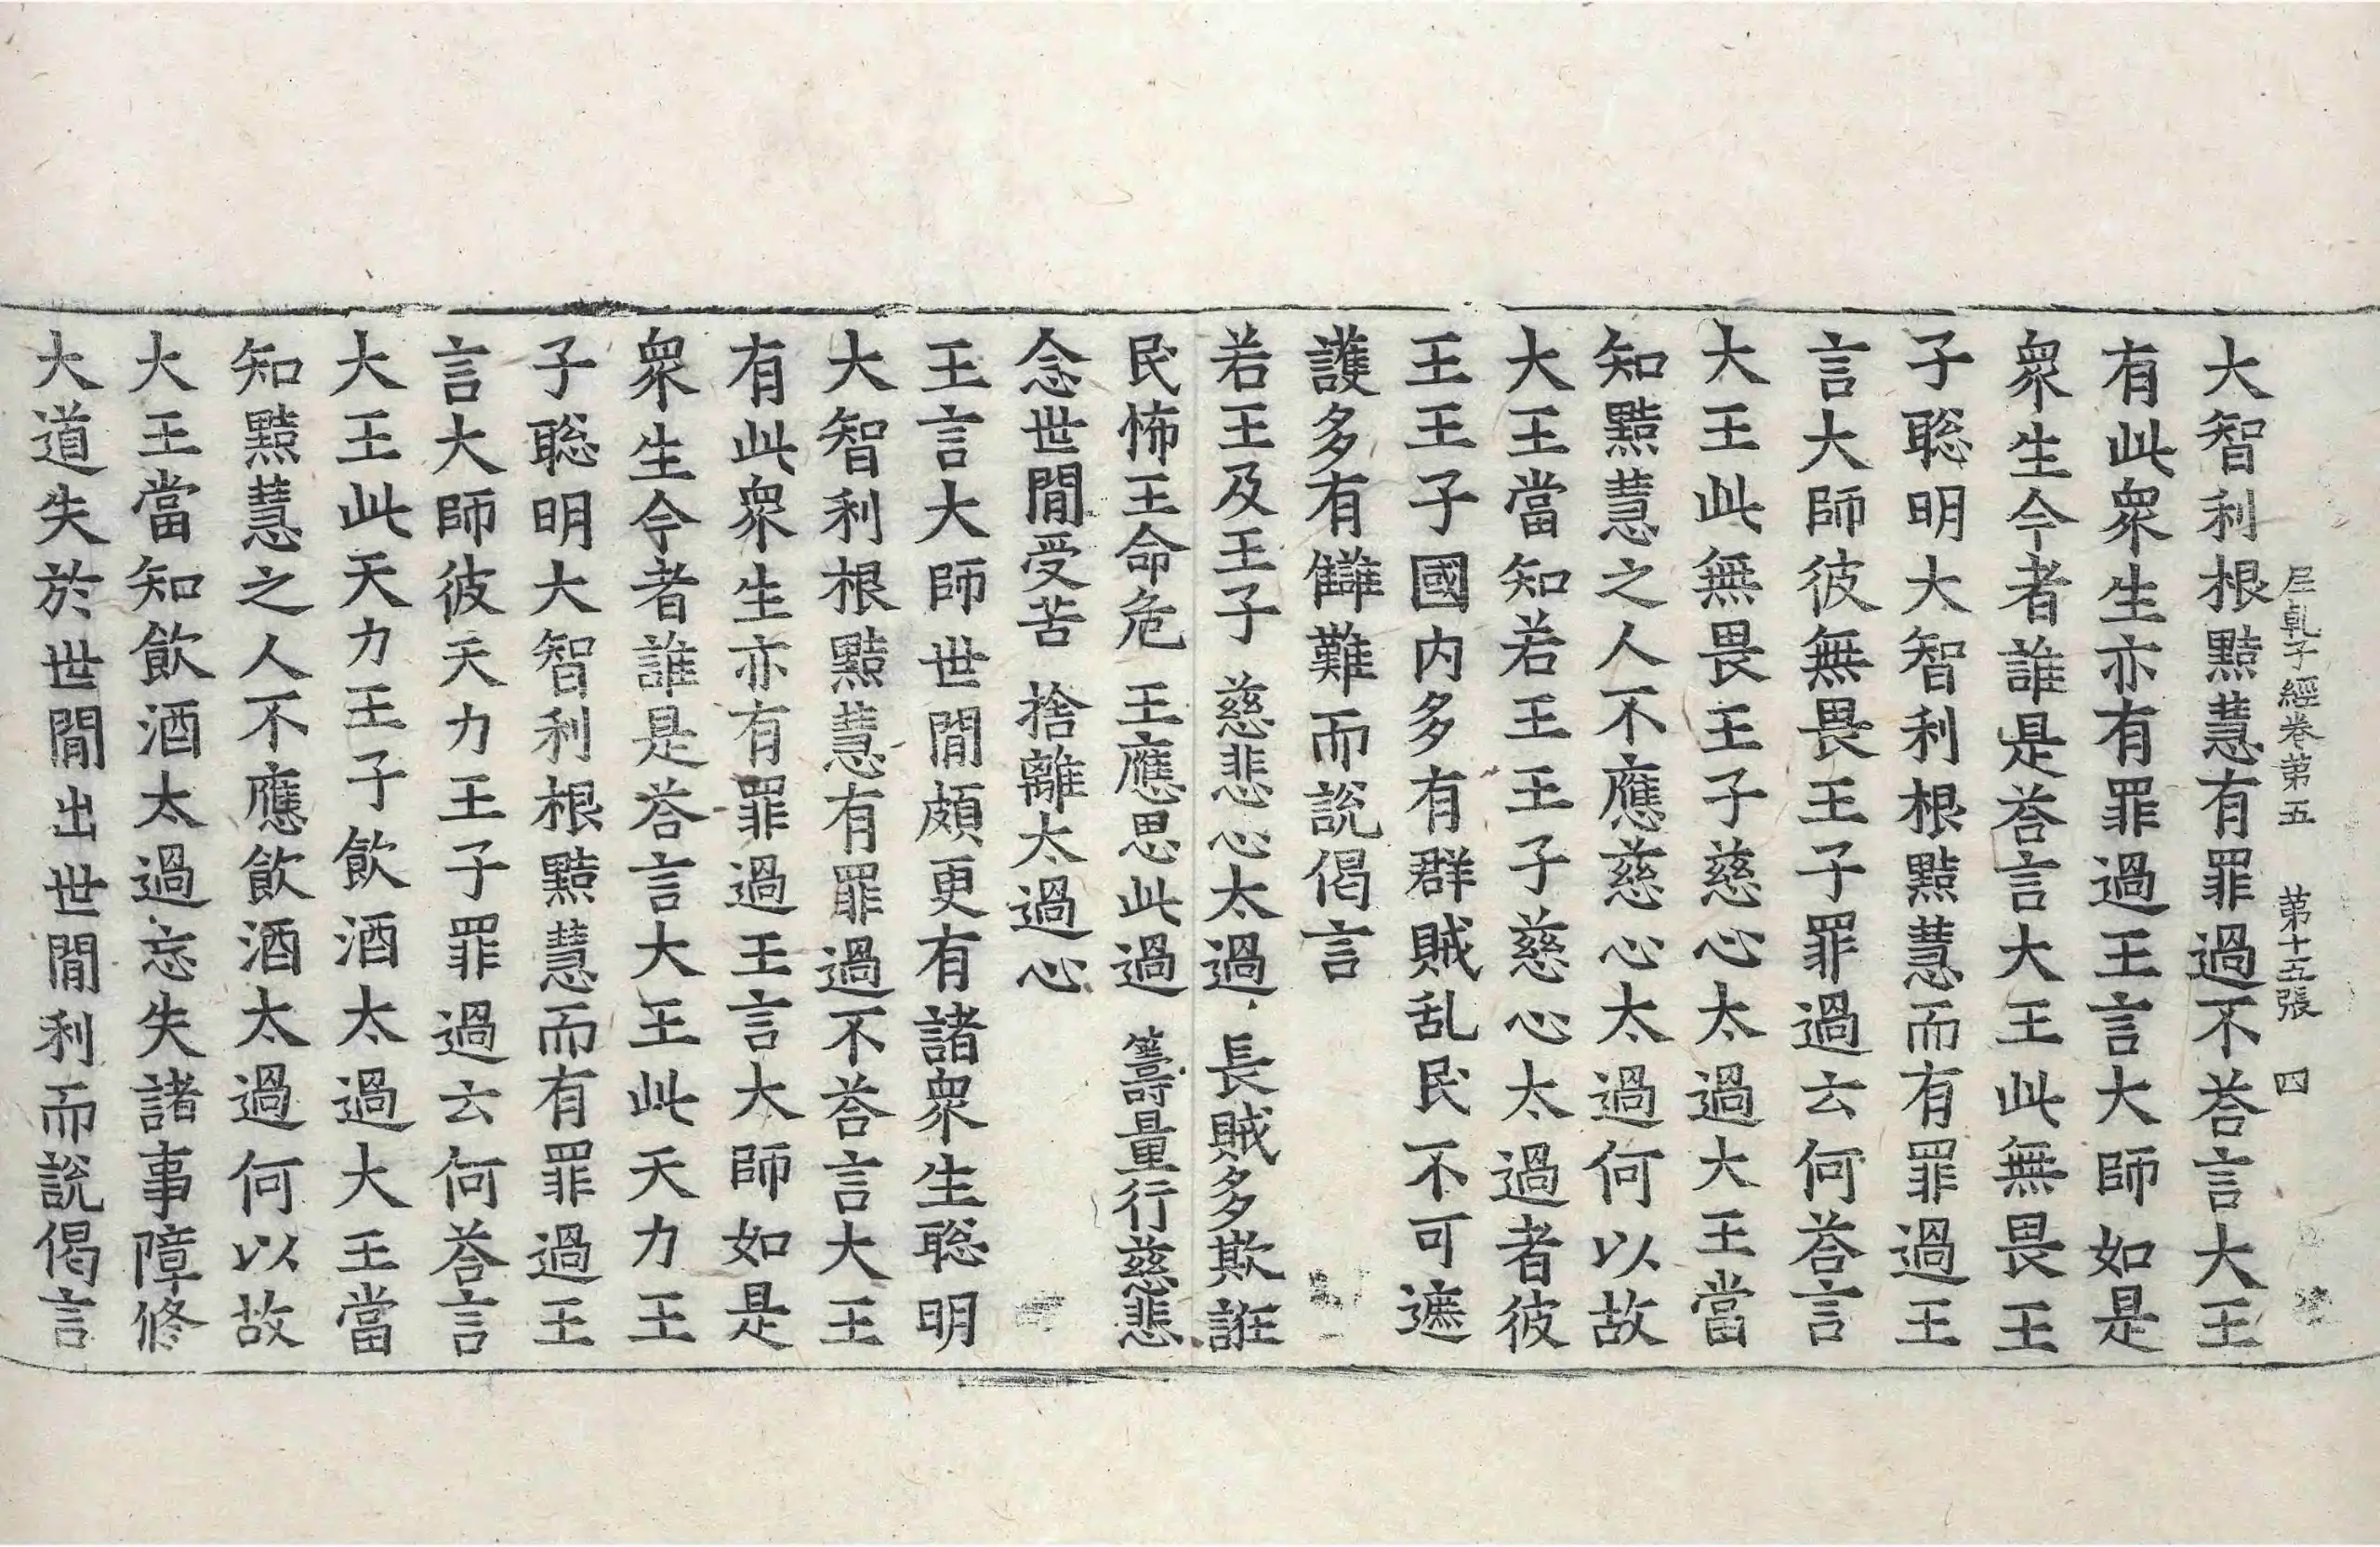 尼乹子經卷第五 第十五張 四
大智利根黠慧有罪過不荅言大王
有此衆生亦有罪過王言大師如是
衆生今者誰是荅言大王此無畏王
子聡明大智利根黠慧而有罪過王
言大師彼無畏王子罪過云何荅言
大王此無畏王子慈心太過大王當
知黠慧之人不應慈心太過何以故
大王當知若王王子慈心太過者彼
王王子國内多有群賊乱民不可遮
護多有讎難而說偈言
若王及王子 慈悲心太過 長賊多欺誑
民怖王命危 王應思此過 籌量行慈悲
念世間受苦 捨離太過心
王言大師世間頗更有諸衆生聡明
大智利根黠慧有罪過不荅言大王
有此衆生亦有罪過王言大師如是
衆生今者誰是荅言大王此天力王
子聡明大智利根黠慧而有罪過王
言大師彼天力王子罪過云何荅言
大王此天力王子飲酒太過大王當
知黠慧之人不應飲酒太過何以故
大王當知飲酒太過忘失諸事障修
大道失於世間出世間利而說偈言